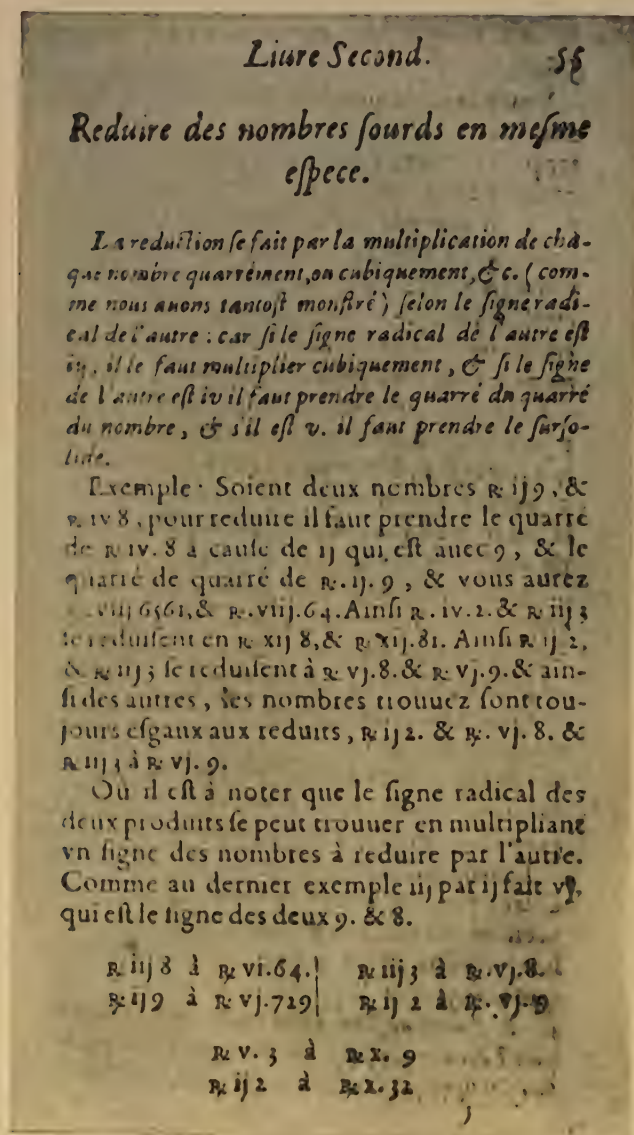 Liure Second. 55
Reduire des nombres ſourds en meſme
eſpece.
La reduction ſe fait par la multiplication de châ-
que nombre quarrément, ou cubiquement, &c. (com-
me nous auons tantoſt monſtré) ſelon le ſigne radi-
cal de l'autre : car ſi le ſigne radical de l'autre eſt
iij. il le faut multiplier cubiquement, & ſi le ſigne
de l'autre eſt iv il faut prendre le quarré du quarré
du nombre, & s'il eſt v. il faut prendre le ſurſo-
lide.
Exemple. Soient deux nombres ℞ ij 9, &
℞ iv 8, pour reduire il faut prendre le quarré
de ℞ iv. 8 a cauſe de ij qui eſt auec 9, & le
quarré de quarré de ℞. ij. 9, & vous aurez
viij 6561, & ℞. viij. 64. Ainſi ℞. iv. 2. & ℞ iij 3
ſe reduiſent en ℞ xij 8, & ℞ xij. 81. Ainſi ℞ ij 2,
& ℞ iij 3 ſe reduiſent à ℞ vj. 8. & ℞ vj. 9. & ain-
ſi des autres, les nombres trouuez ſont tou-
jours eſgaux aux reduits, ℞ ij 2. & ℞. vj. 8. &
℞ iij 3 à ℞ vj. 9.
Où il eſt à noter que le ſigne radical des
deux produits ſe peut trouuer en multipliant
vn ſigne des nombres à reduire par l'autre.
Comme au dernier exemple iij par ij fait vj,
qui eſt le ſigne des deux 9. & 8.
℞ iij 8 à ℞ vi. 64. | ℞ iij 3 à ℞. vj. 8.
℞ ij 9 à ℞ vj. 729 | ℞ ij 2 à ℞. vj. 9
℞ v. 3 à ℞ x. 9
℞ ij 2 à ℞ x. 32